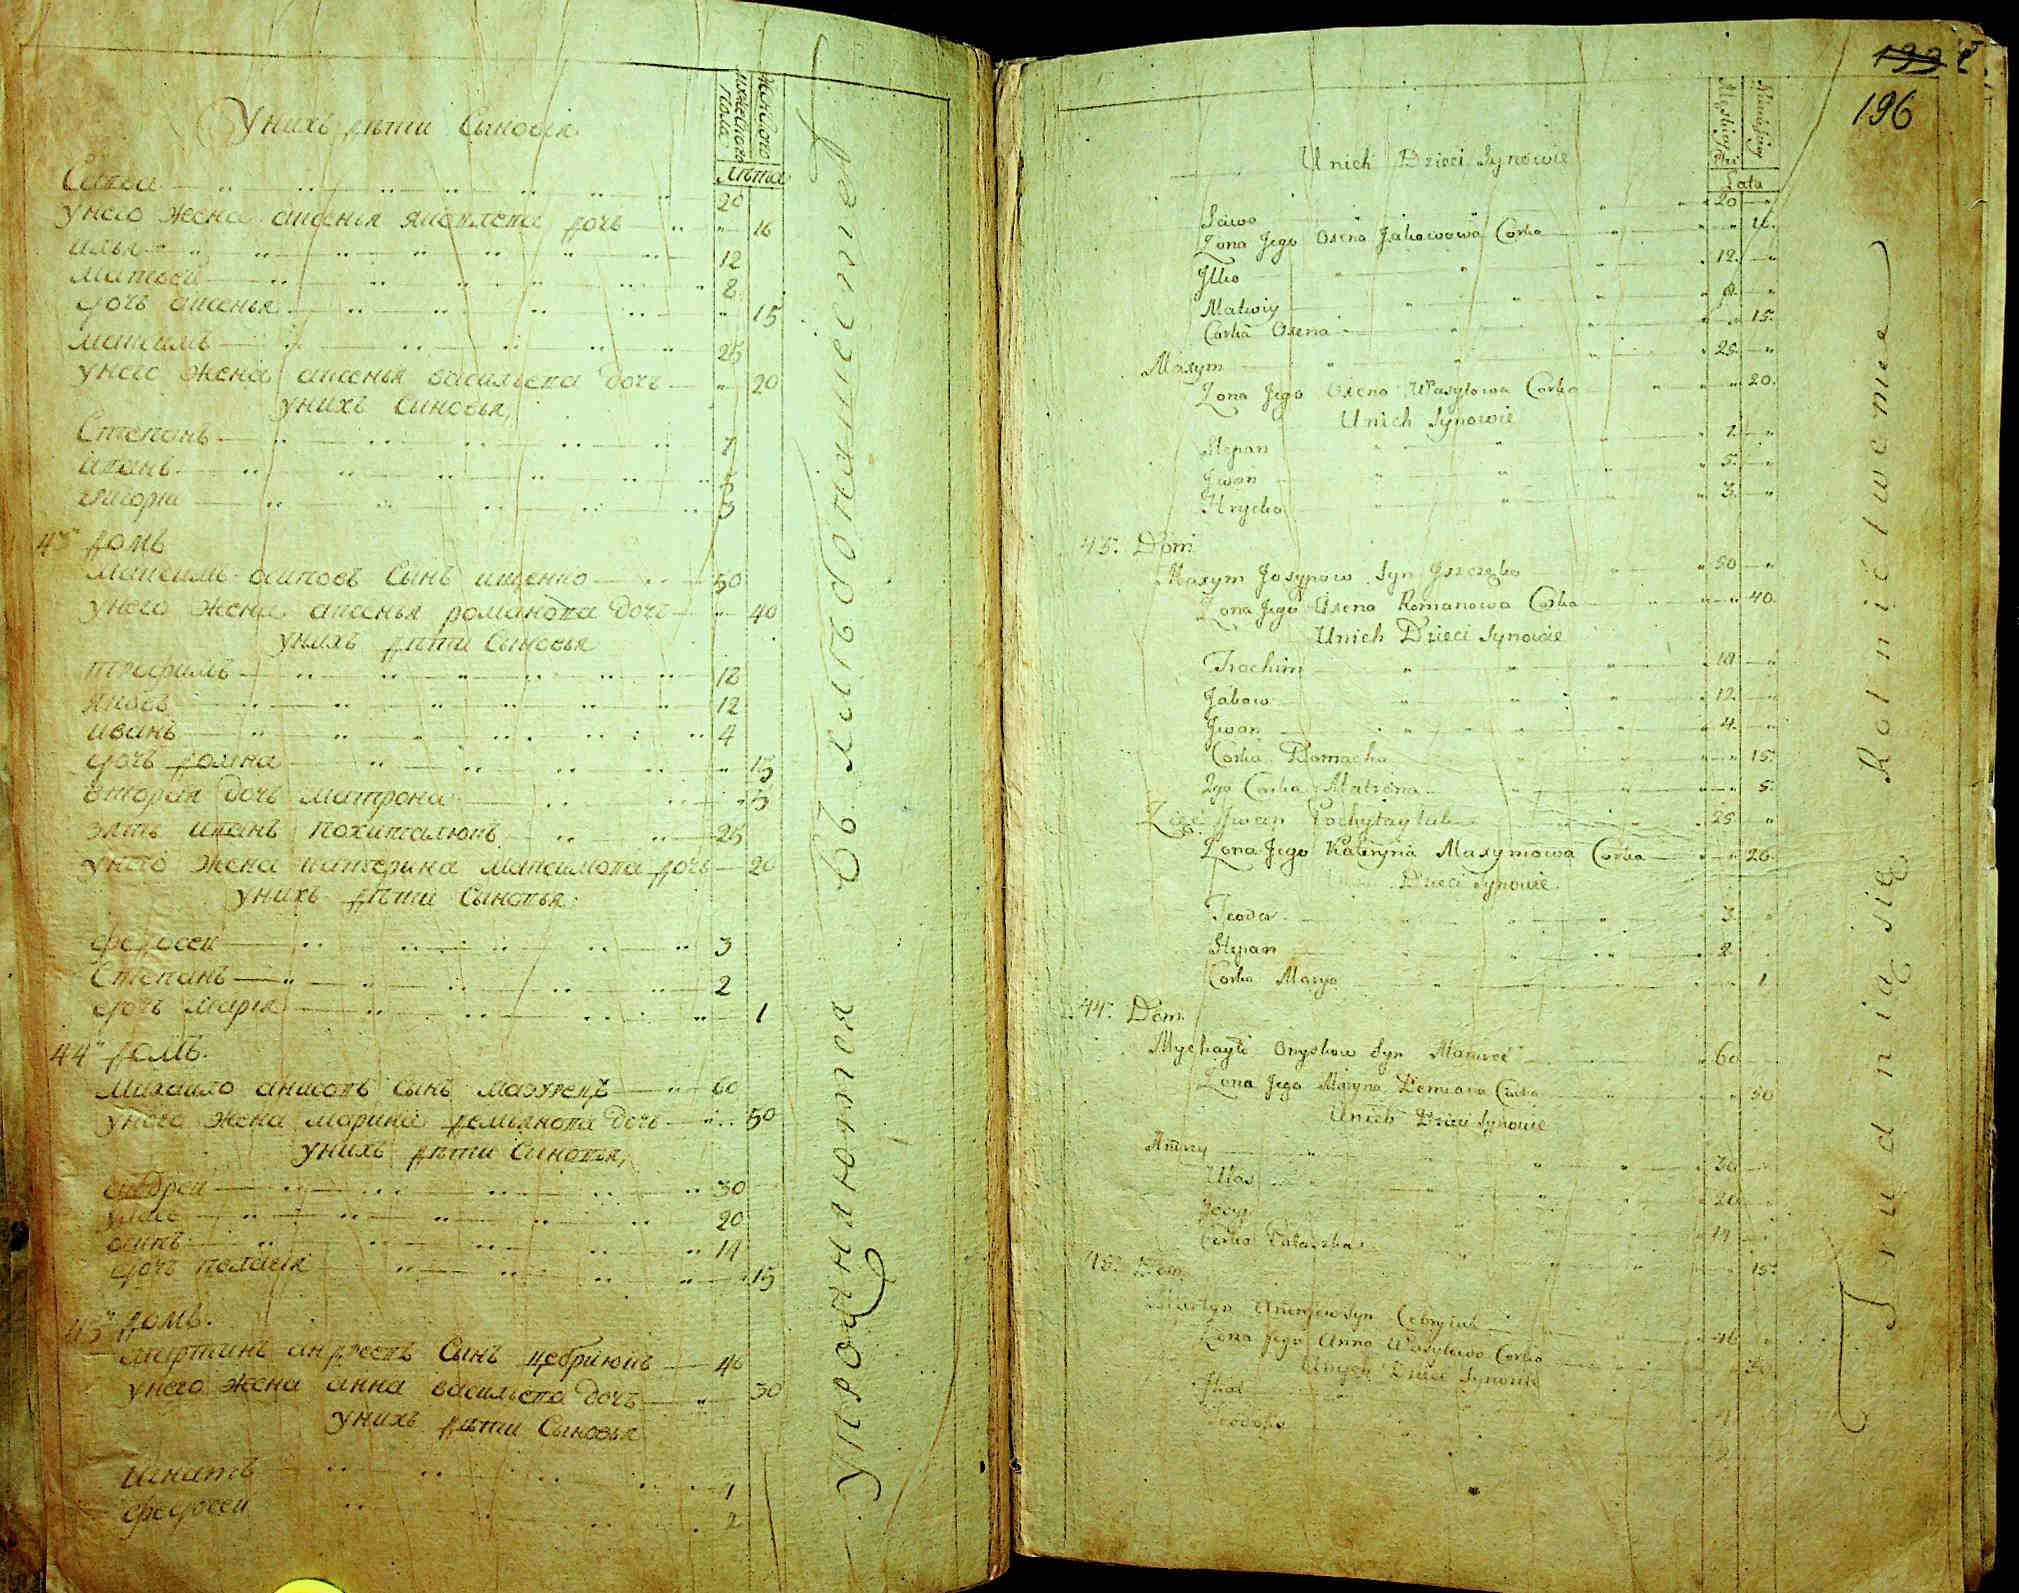 Унихъ дѣти Сыновья
мужеска пола
женскаго
Лѣта
Савва 20
Унего жена апсенья яковлева дочь 16
илья 12
матвей 8
дочь апсенья 15
максимъ 25
Унего жена апсенья васильева дочь 20
унихъ Сыновья
Степанъ 7
иванъ 5
григори 3
43 домъ
максимъ осиповъ Сынъ ищенко 50
унего жена апсенья романова дочь 40
унихъ дѣти Сыновья
трофимъ 18
яковъ 12
иванъ 4
дочь домна 15
вторая дочь матрона 5
зять иванъ похиталюкъ 25
унего жена катерина максимова дочь 20
унихъ дѣти Сыновья
федосеи 3
Степанъ 2
дочь марія 1
44 домъ.
михаило анисовъ сынъ мазурецъ 60
унего жена марина демьянова дочь 50
унихъ дѣти Сыновья
андреи 30
уласъ 20
осипъ 14
дочь пелагия 15
45 домъ.
мартинъ андреевъ Сынъ цебрюкъ 40
унего жена анна васильева дочь 30
унихъ дѣти Сыновья
игнатъ 4
федосеи 2
упрожняются въ хлебопашестве
199
196
Unich Dzieci Synowie
Lata
Sawo 20
Zona Jego Oxena Jakowowa Corka 16
Jlko 12
Matwiy 8
Corka Oxena 15
Maxym 25
Zona Jego Oxena Wasylowa Corka 20
Unich Synowie
Stepan 7
Jwan 5
Hryčko 3
43. Dom
Maxym Josypow Syn Jszczęko 50
Zona Jego Oxena Romanowa Corka 40
Unich Dzieci Synowie
Trochim 18
Jakow 12
Jwan 4
Corka Domacha 15
2ga Corka Matrena 5
Zięć Jwan Pochytayluk 25
Zona Jego Kateryna Maxymowa Corka 20
Dzieci Synowie
Teodor 3
Stepan 2
Corka Marya 1
44. Dom
Mychayło Onyskow Syn 60
Zona Jego Maryna Demiana Corka 50
Unich Dzieci Synowie
Andrey 30
Ułas 20
Josyp 14
Corka Palaszka 15
45. Dom
Martyn Andrejow Syn Cebryiuk 40
Zona Jego Anna Wasylowa Corka 30
Unich Dzieci Synowie
Jhnat 4
Trudnią się Rolnictwem